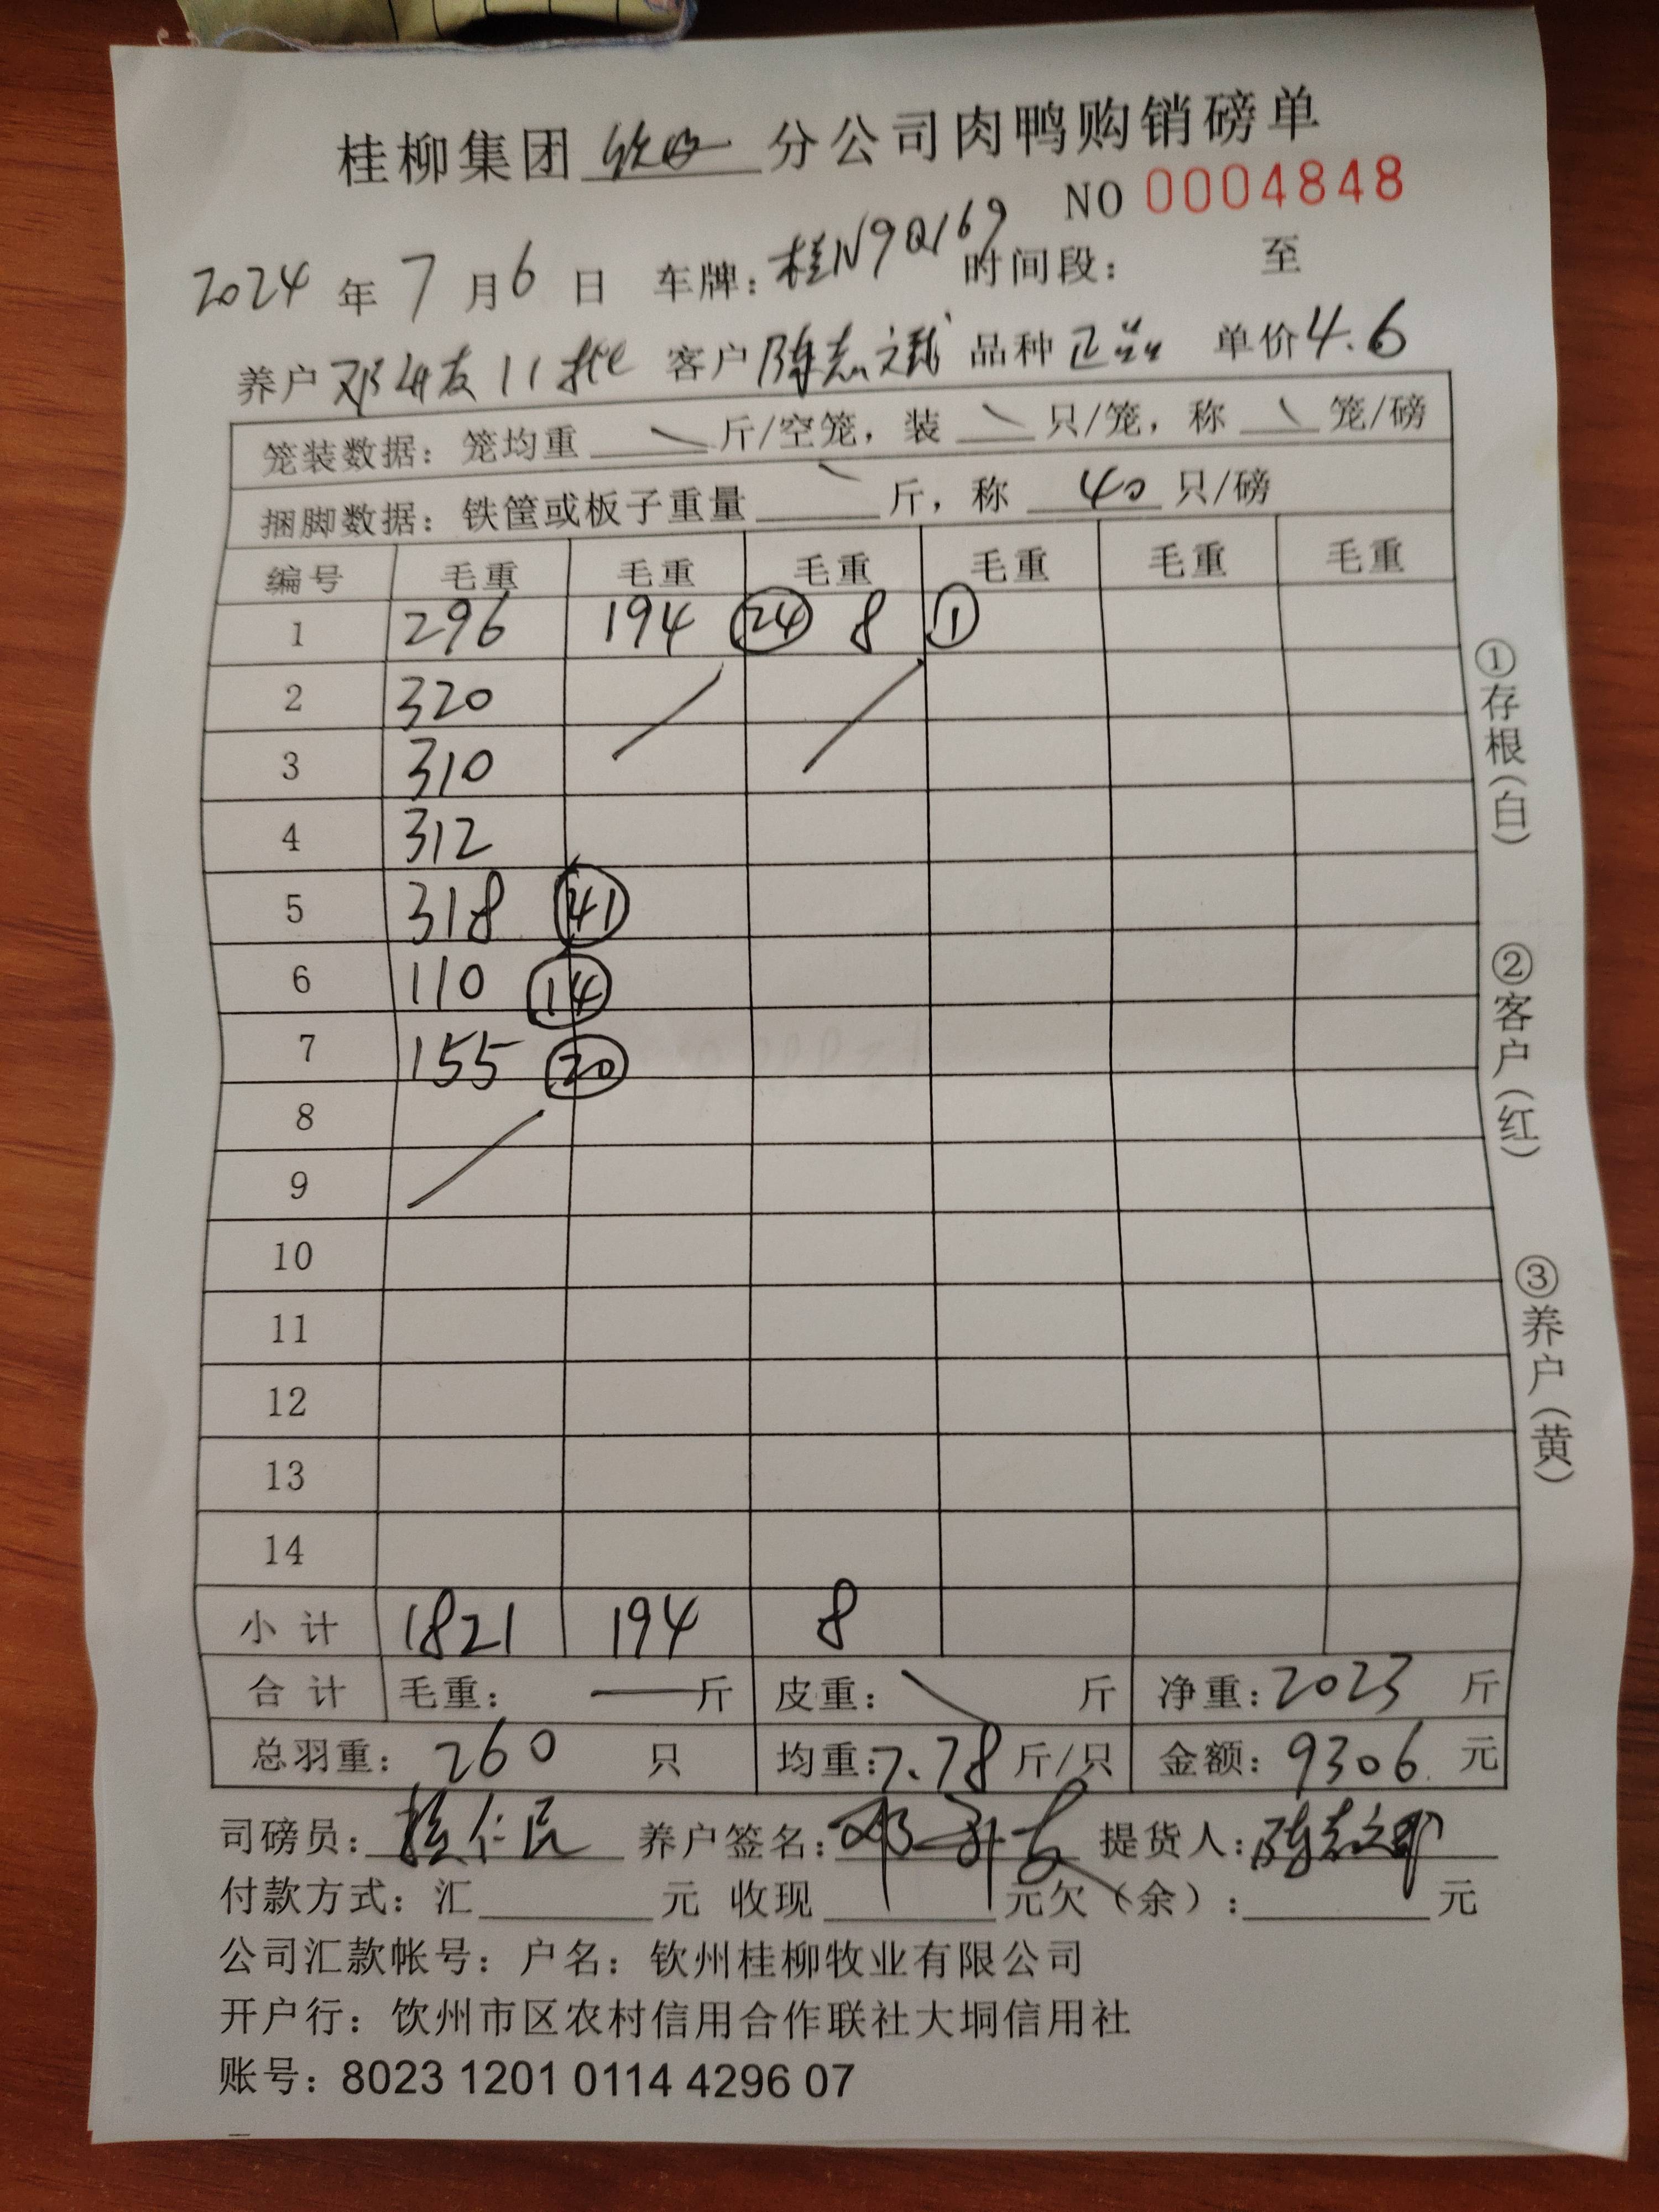 桂柳集团钦州分公司肉鸭购销磅单
NO 0004848
2024年7月6日 车牌:桂N9Q169 时间段: 至
养户 邓 友 11批 客户 陈志斌 品种 正品 单价4.6
笼装数据:笼均重 斤/空笼,装 只/笼,称 笼/磅
捆脚数据:铁筐或板子重量 斤,称 40 只/磅
编号 毛重 毛重 毛重 毛重 毛重 毛重
1 296 194 24 8 1
2 320
3 310
4 312
5 318 41
6 110 14
7 155 20
8
9
10
11
12
13
14
小计 1821 194 8
合计 毛重: 斤 皮重: 斤 净重:2023 斤
总羽重: 260 只 均重:7.78 斤/只 金额:9306 元
司磅员: 仁民 养户签名:邓 友 提货人:陈志
付款方式:汇 元 收现 元欠(余): 元
公司汇款帐号:户名:钦州桂柳牧业有限公司
开户行:钦州市区农村信用合作联社大垌信用社
账号:8023 1201 0114 4296 07
①存根(白)
②客户(红)
③养户(黄)